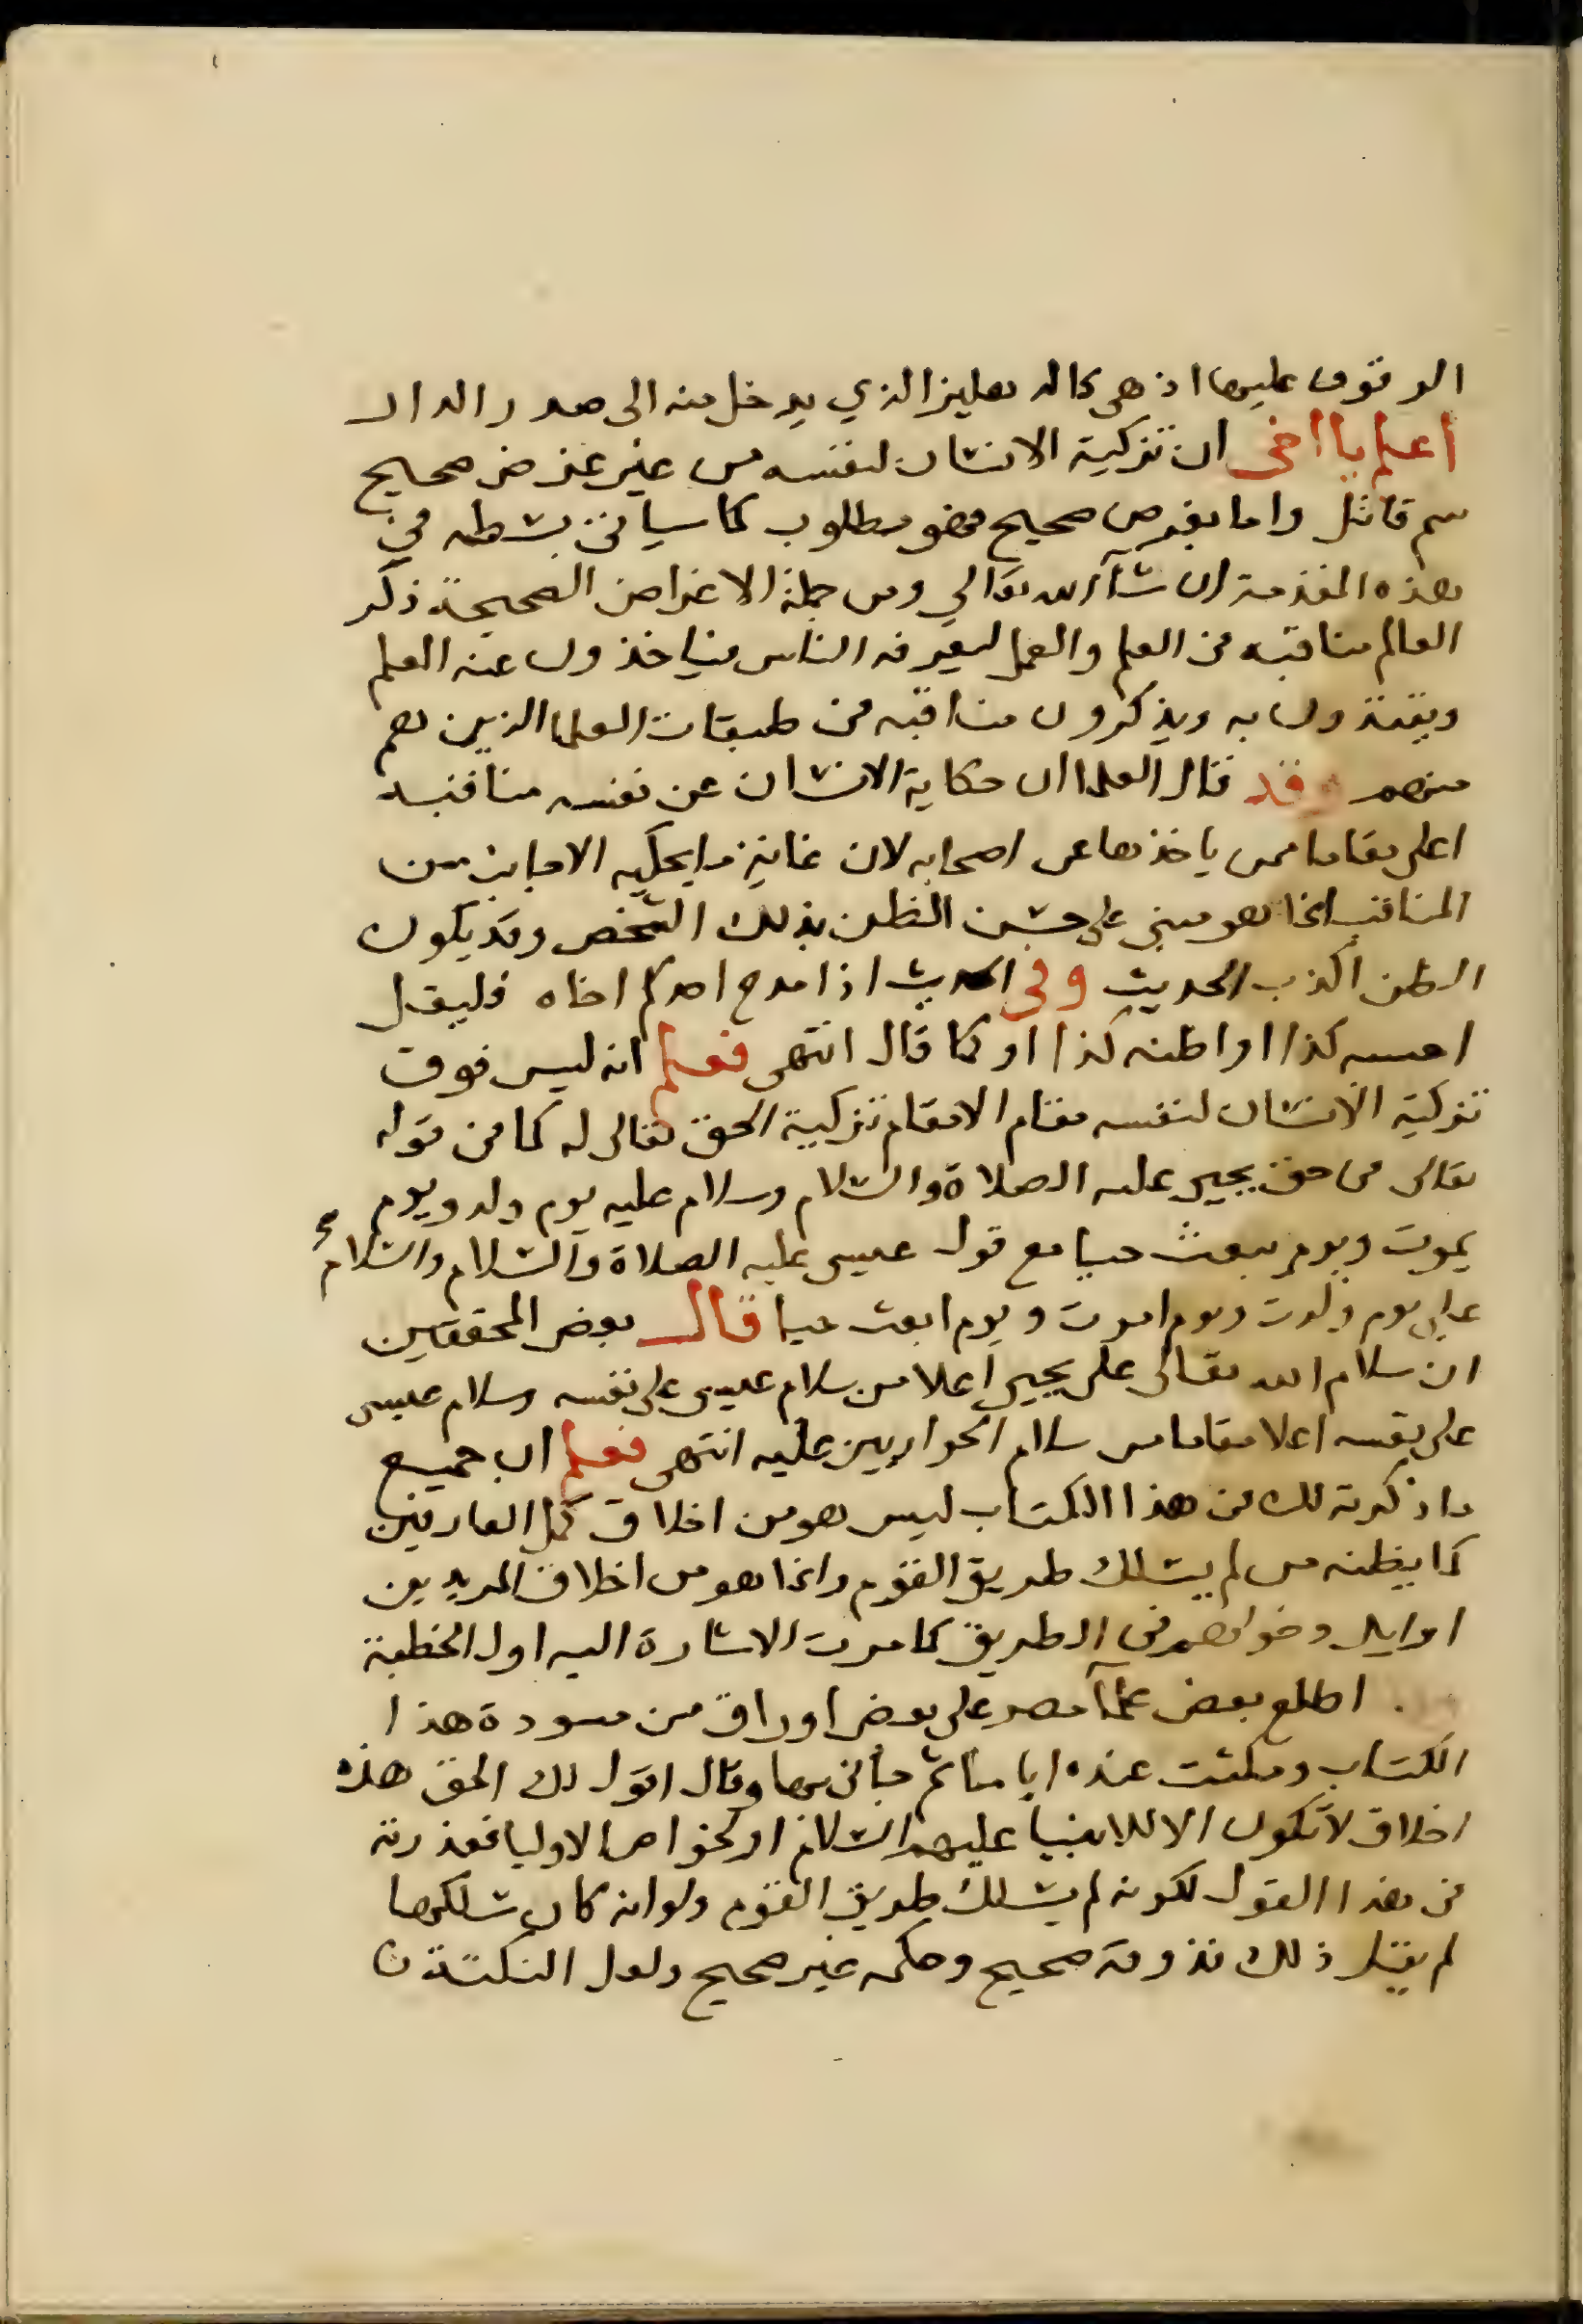 الوقوف عليها اذ هى كالدهليز الذي يدخل منه الى صدر الدار
اعلم يا اخى ان تزكية الانسان لنفسه من غير غرض صحيح
سم قاتل واما بغرض صحيح فهو مطلوب كما سياتى بسطه في
هذه المقدمة ان شآ الله تعالي ومن جملة الاغراض الصحيحة ذكر
العالم مناقبه فى العلم والعمل ليعرفه الناس فياخذون عنه العلم
ويقتدون به ويذكرون مناقبه فى طبقات العلما الذين هم
منهم وقد قال العلما ان حكاية الانسان عن نفسه مناقبه
اعلى مقاما ممن ياخذها عن اصحابه لان غاية ما يحكيه الاجانب من
المناقب انما هو مبنى على حسن الظن بذلك الشخص وقد يكون
الظن اكذب الحديث وفى الحديث اذا مدح احدكم اخاه فليقل
احسبه كذا او اظنه كذا او كما قال انتهى فعلم انه ليس فوق
تزكية الانسان لنفسه مقام الا مقام تزكية الحق تعالى له كما فى قوله
تعالى فى حق يحيى عليه الصلاة والسلام وسلام عليه يوم ولد ويوم
يموت ويوم يبعث حيا مع قول عيسى عليه الصلاة والسلام والسلام
على يوم ولدت ويوم اموت ويوم ابعث حيا قال بعض المحققين
ان سلام الله تعالى على يحيى اعلا من سلام عيسى على نفسه وسلام عيسى
على نفسه اعلا مقاما من سلام الحواريين عليه انتهى فعلم ان جميع
ما ذكرته لك فى هذا الكتاب ليس هو من اخلاق كمل العارفين
كما يظنه من لم يسلك طريق القوم وانما هو من اخلاق المريدين
اوايل دخولهم فى الطريق كما مرت الاشارة اليه اول الخطبة
اطلع بعض علمآ مصر على بعض اوراق من مسودة هذا
الكتاب ومكثت عنده اياما ثم جانى بها وقال اقول لك الحق هذه
اخلاق لا تكون الا للانبيا عليهم السلام او لخواص الاوليا فعذرته
فى هذا القول لكونه لم يسلك طريق القوم ولو انه كان سلكها
لم يقل ذلك فذوقه صحيح وحكمه غير صحيح ولعل النكتة